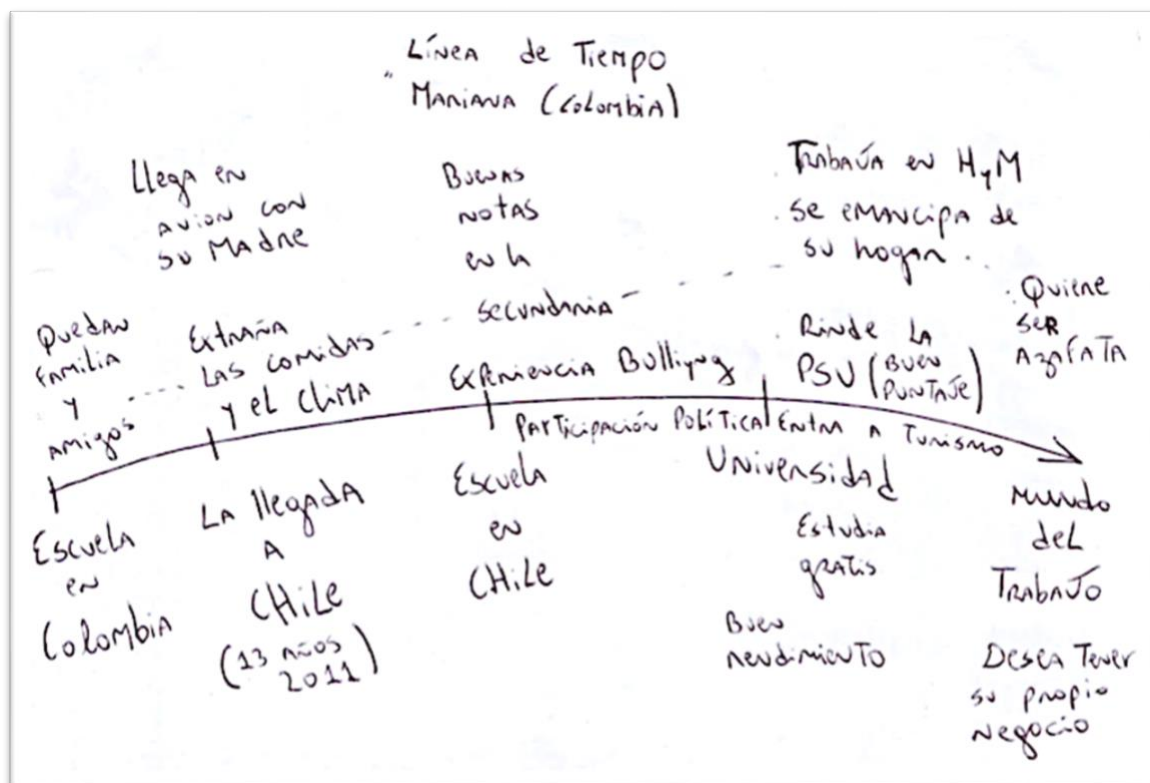 Línea de Tiempo
Mariana (Colombia)
Llega en
avion con
su Madre
Buenas
notas
en la
secundaria
Trabaja en HyM
se emancipa de
su hogar.
Quedan
familia
y
amigos
Extraña
las comidas
y el clima
Experiencia Bulliyng
Rinde la
PSU (Buen
puntaje)
Quiere
ser
Azafata
Participación Política
Entra a Turismo
Escuela
en
Colombia
La llegada
a
CHile
(13 años
2011)
Escuela
en
CHile
Universidad
Estudia
gratis
Buen
rendimiento
Mundo
del
Trabajo
Desea Tener
su propio
negocio